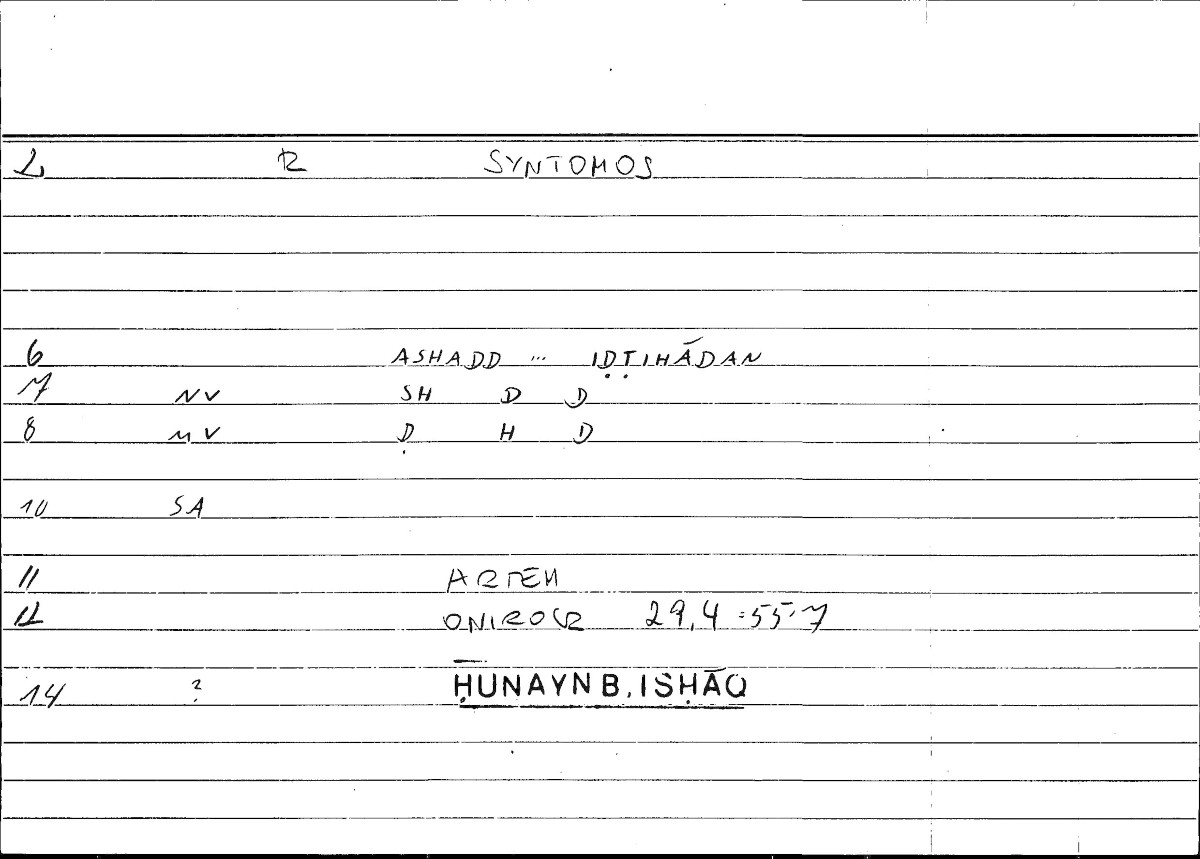 2 R SYNTOMOS
6 ASHADD ... IḌṬIHĀDAN
7 NV SH D D
8 MV Ḍ H D
10 SA
11 ARTEM
12 ONIROCR 29,4 :55,7
14 ? ḤUNAYN B. ISḤĀQ